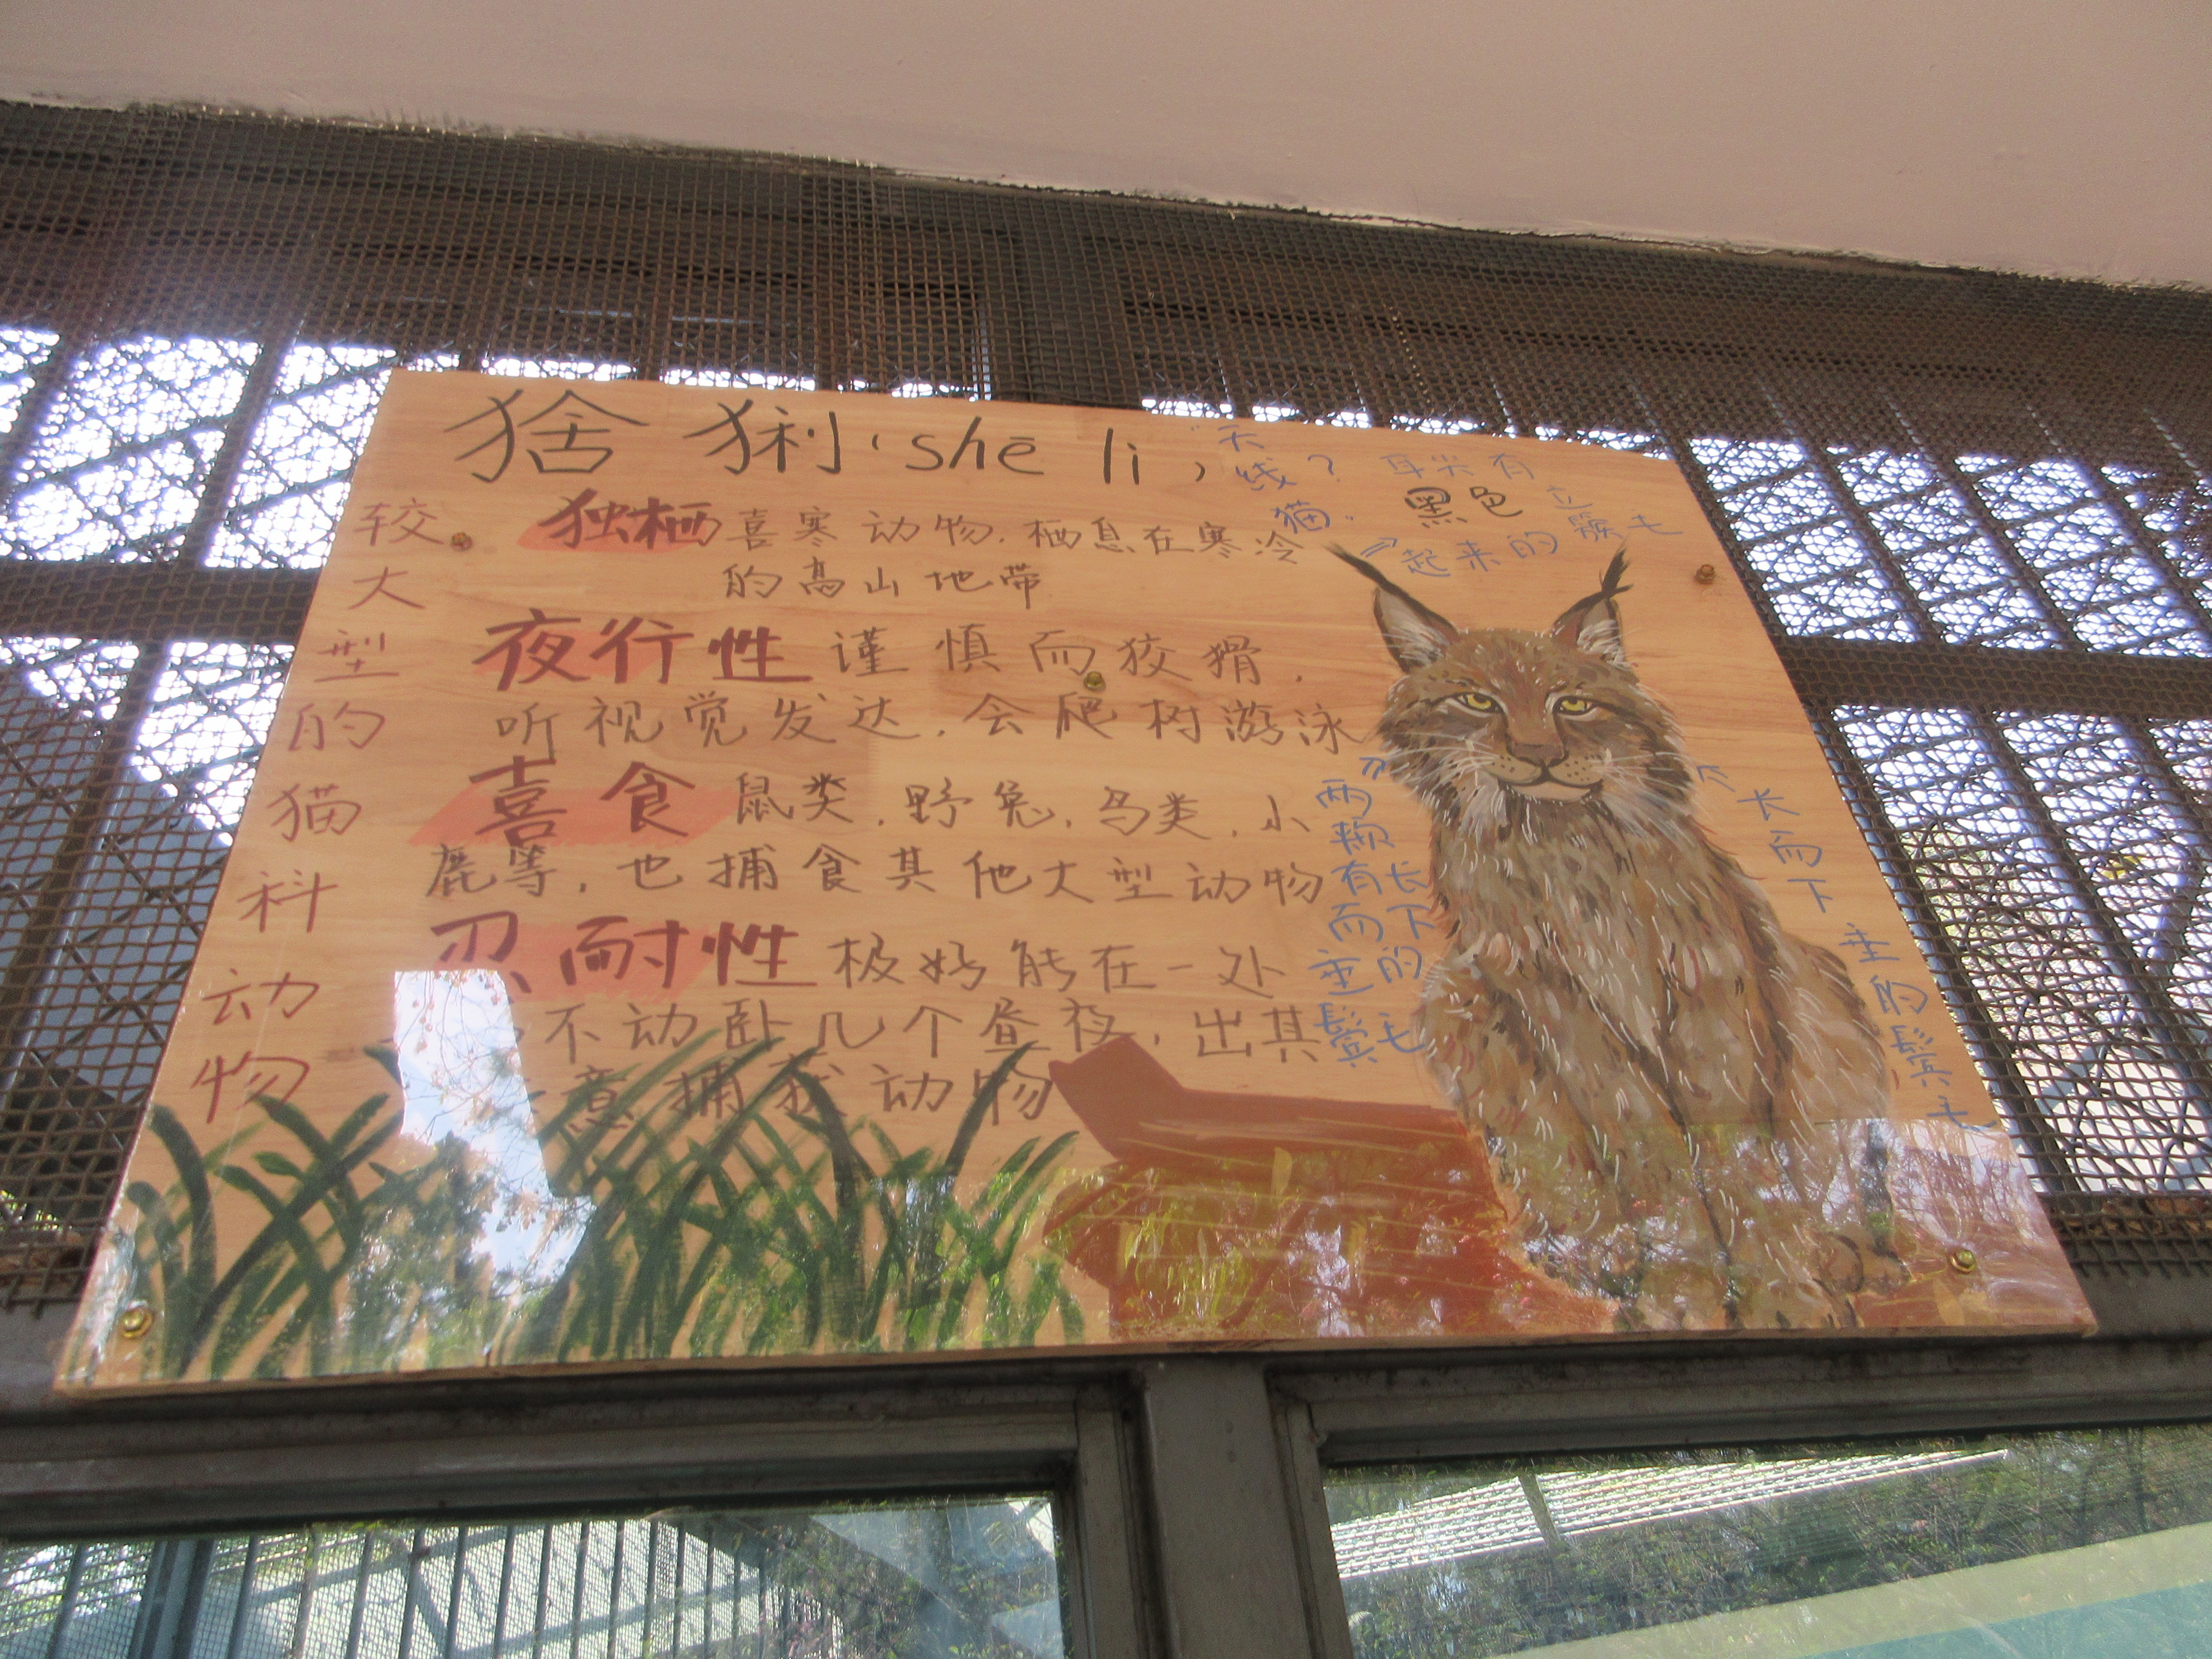 猞猁(shē lì)
"天
线?
猫"
耳尖有
黑色
立
起来的簇毛
较大型的猫科动物
独栖 喜寒动物,栖息在寒冷
的高山地带
夜行性 谨慎而狡猾,
听视觉发达,会爬树游泳
喜食 鼠类,野兔,鸟类,小
鹿等,也捕食其他大型动物
忍耐性 极好能在一处
不动卧几个昼夜,出其
意捕获动物
两颊有长
而下
垂的
鬓毛
长而下垂的鬓毛